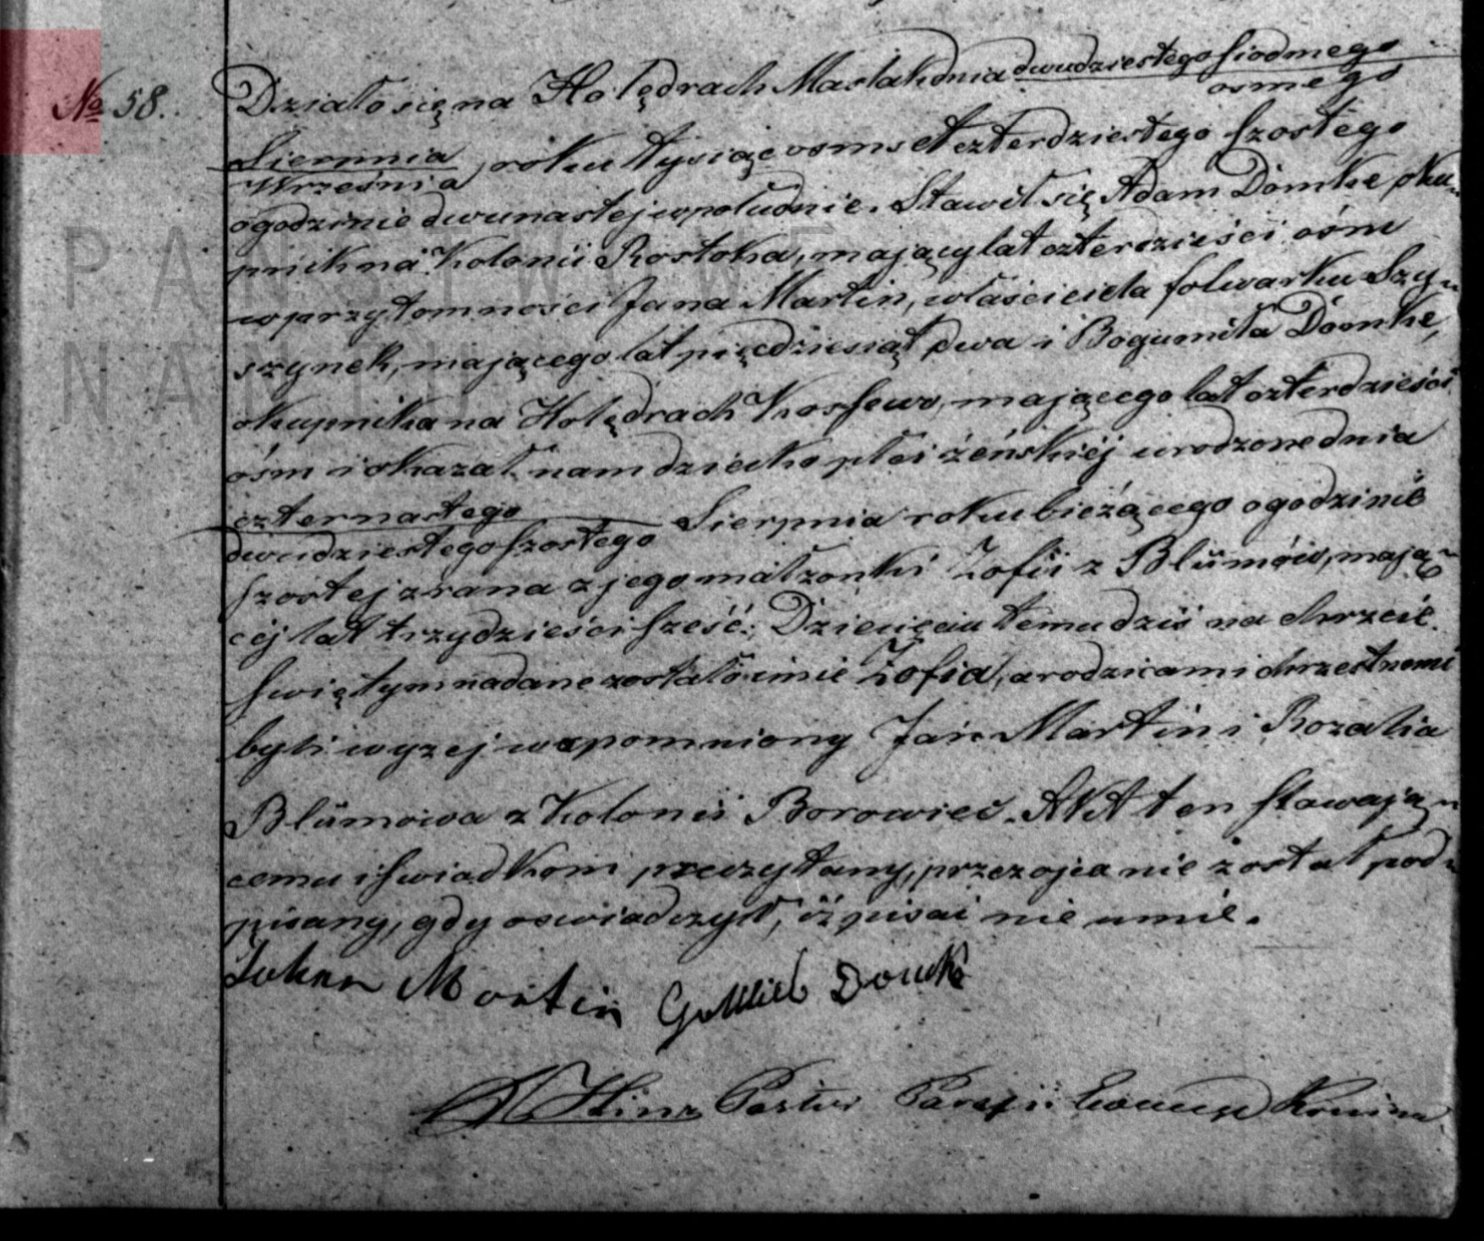 No 58. Działo się na Holędrach Maślaki dnia dwudziestego siodmego
osmego
Sierpnia
Września roku tysiąc osmset czterdziestego szostego
o godzinie dwunastej w południe. Stawił się Adam Dömke, oku-
pnik na Kolonii Rostoka, mający lat czterdzieści ośm
w przytomności Jana Martin, właściciela folwarku Szy-
szynek, mającego lat pięćdziesiąt dwa i Bogumiła Dömke,
okupnika na Holędrach Kossewo, mającego lat czterdzieści
ośm i okazał nam dziecko płci żeńskiéj urodzone dnia
czternastego
dwudziestego szostego Sierpnia roku bieżącego o godzinie
szostej z rana z jego małżonki Zofii z Blümów, mają-
céj lat trzydzieści sześć. Dziecięciu temu dziś na chrzcie
swiętym nadane zostało imie Zofia, a rodzicami chrzestnemi
byli wyzej wspomniony Jan Martin i Rozalia
Blümowa z Kolonii Borowiec. Akt ten stawają-
cemu i swiadkom przeczytany, przez ojca nie został pod-
pisany, gdy oswiadczył, iż pisać nie umie.
Johan Martin Gottlieb Domke
Hinz Pastor Parafii Ewang Konina
PAŃSTWOWE